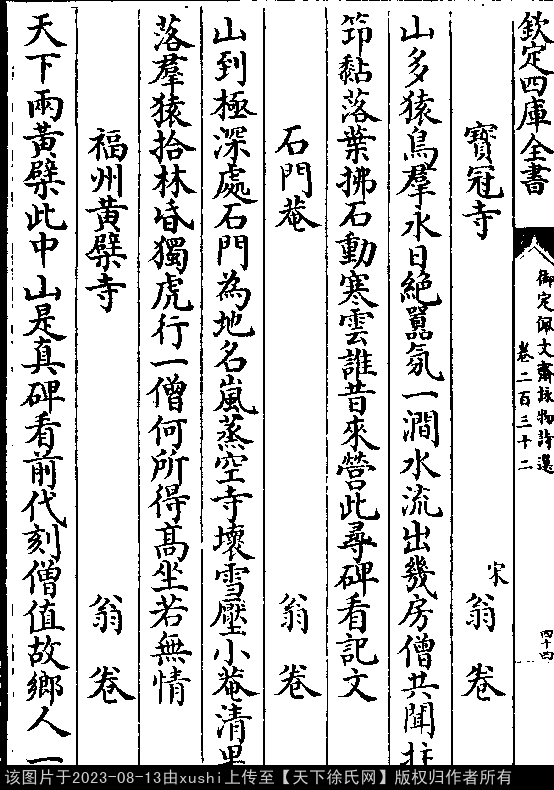 欽定四庫全書
御定佩文齋詠物詩選
卷二百三十二
四十四
寶冠寺
宋
翁卷
山多猿鳥羣水日絶囂氛一澗水流出幾房僧共聞拄
笻黏落葉拂石動寒雲誰昔來營此尋碑看記文
石門菴
翁卷
山到極深處石門為地名嵐蒸空寺壞雪壓小菴清果
落羣猿拾林昏獨虎行一僧何所得髙坐若無情
福州黄檗寺
翁卷
天下兩黄檗此中山是真碑看前代刻僧值故鄉人一
该图片于2023-08-13由xushi上传至【天下徐氏网】版权归作者所有